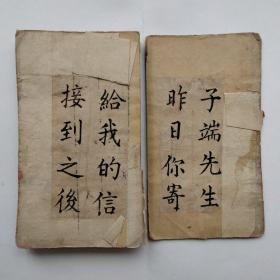 子端先生
昨日你寄
給我的信
接到之後